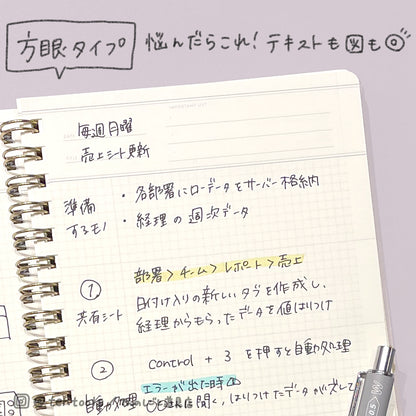 方眼タイプ 悩んだらこれ！テキストも図も◎
毎週月曜
売上シート更新
準備するモノ
・各部署にローデータをサーバー格納
・経理の週次データ
部署＞チーム＞レポート＞売上
① 共有シート
日付け入りの新しいタブを作成し、
経理からもらったデータを値はりつけ
② 自動処理
control + 3 を押すと自動処理
エラーが出た時は
開く、はりつけたデータがズレて